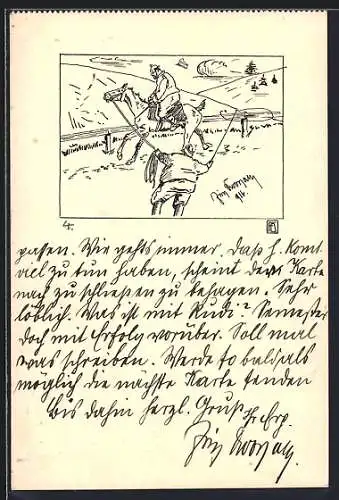 4.
passen. Wie gehts immer. Daß H. Komt.
viel zu tun haben, scheint der Karte
nach zu schließen zu behagen. Sehr
löblich. Was ist mit Rudi? Semester
doch mit Erfolg vorüber. Soll mal
was schreiben. Werde so bald als
möglich die nächste Karte senden
Bis dahin herzl. Gruß Ihr
Fritz